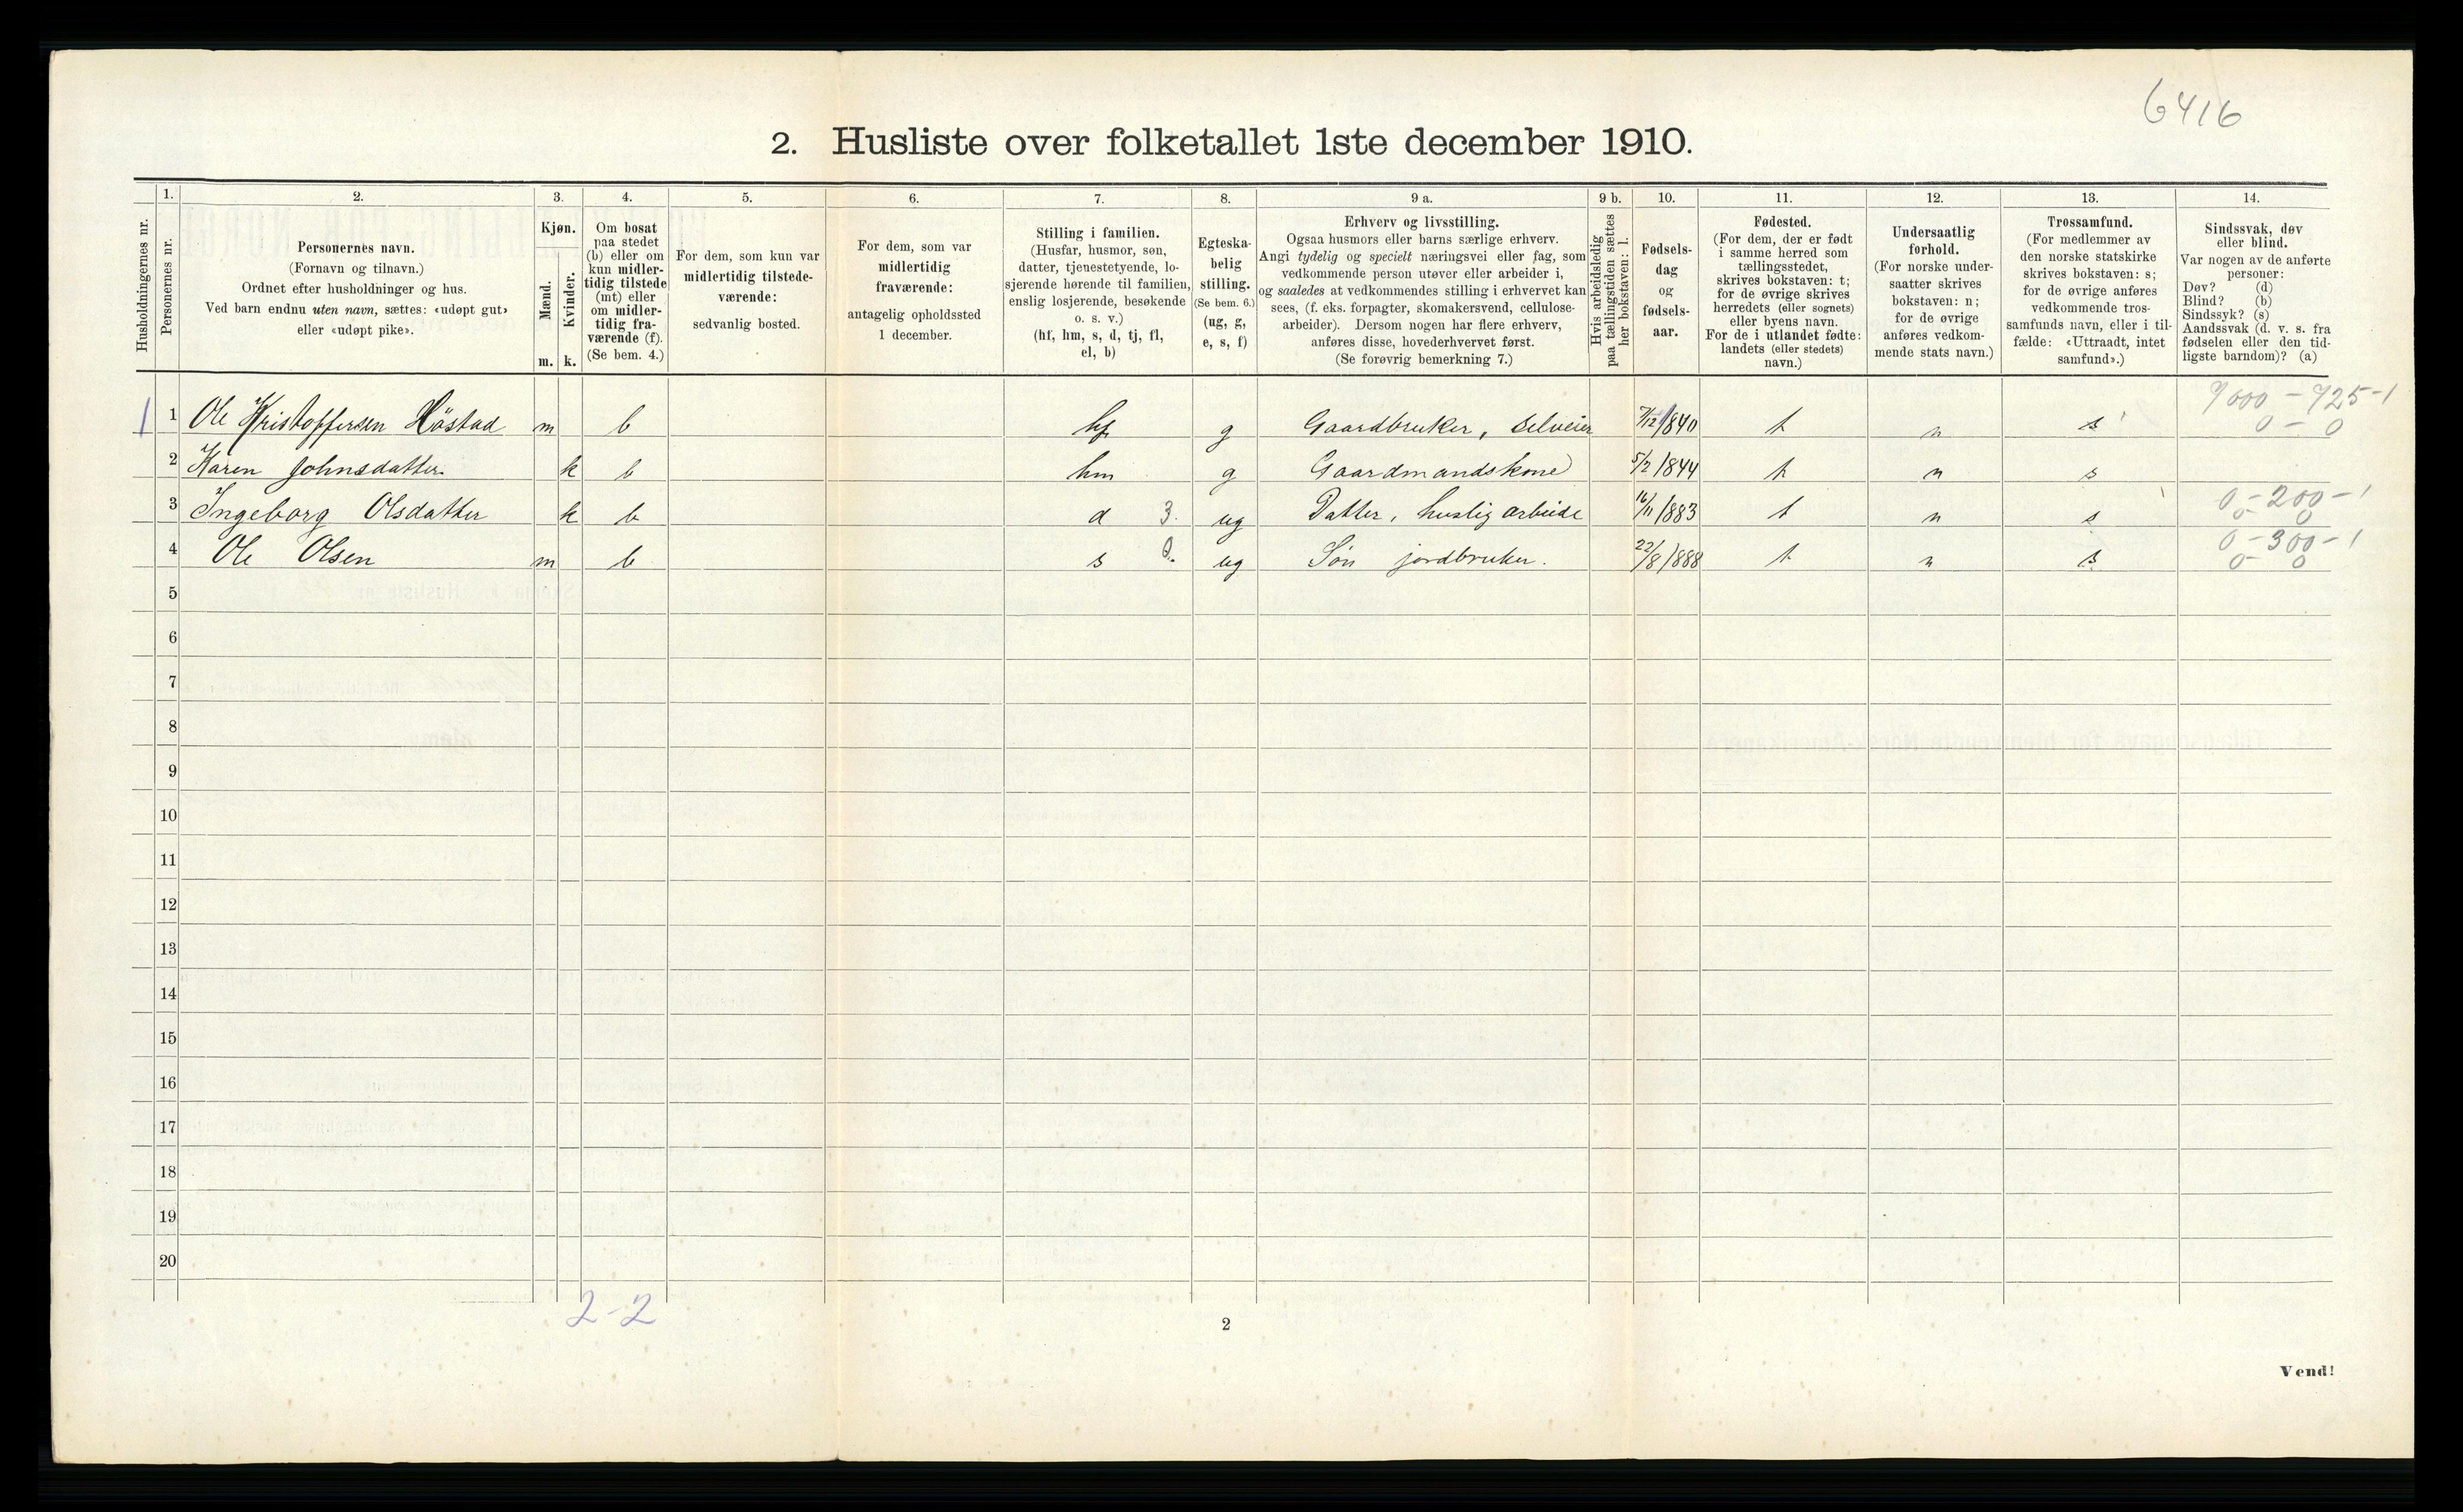 6416
2. Husliste over folketallet 1ste december 1910.
Husholdningernes nr.
1.
Personernes nr.
2.
Personernes navn.
(Fornavn og tilnavn.)
Ordnet efter husholdninger og hus.
Ved barn endnu uten navn, sættes: «udøpt gut»
eller «udøpt pike».
3.
Kjøn.
Mænd.
m.
Kvinder.
k.
4.
Om bosat
paa stedet
(b) eller om
kun midler-
tidig tilstede
(mt) eller
om midler-
tidig fra-
værende (f).
(Se bem. 4.)
5.
For dem, som kun var
midlertidig tilstede-
værende:
sedvanlig bosted.
6.
For dem, som var
midlertidig
fraværende:
antagelig opholdssted
1 december.
7.
Stilling i familien.
(Husfar, husmor, søn,
datter, tjenestetyende, lo-
sjerende hørende til familien,
enslig losjerende, besøkende
o. s. v.)
(hf, hm, s, d, tj, fl,
el, b)
8.
Egteska-
belig
stilling.
(Se bem. 6.)
(ug, g,
e, s, f)
9 a.
Erhverv og livsstilling.
Ogsaa husmors eller barns særlige erhverv.
Angi tydelig og specielt næringsvei eller fag, som
vedkommende person utøver eller arbeider i,
og saaledes at vedkommendes stilling i erhvervet kan
sees, (f. eks. forpagter, skomakersvend, cellulose-
arbeider). Dersom nogen har flere erhverv,
anføres disse, hovederhvervet først.
(Se forøvrig bemerkning 7.)
9 b.
Hvis arbeidsledig
paa tællingstiden sættes
her bokstaven: l.
10.
Fødsels-
dag
og
fødsels-
aar.
11.
Fødested.
(For dem, der er født
i samme herred som
tællingsstedet,
skrives bokstaven: t;
for de øvrige skrives
herredets (eller sognets)
eller byens navn.
For de i utlandet fødte:
landets (eller stedets)
navn.)
12.
Undersaatlig
forhold.
(For norske under-
saatter skrives
bokstaven: n;
for de øvrige
anføres vedkom-
mende stats navn.)
13.
Trossamfund.
(For medlemmer av
den norske statskirke
skrives bokstaven: s;
for de øvrige anføres
vedkommende tros-
samfunds navn, eller i til-
fælde: «Uttraadt, intet
samfund».)
14.
Sindssvak, døv
eller blind.
Var nogen av de anførte
personer:
Døv? (d)
Blind? (b)
Sindssyk? (s)
Aandssvak (d. v. s. fra
fødselen eller den tid-
ligste barndom)? (a)
9000 - 725 - 1
1 1 Ole Kristoffersen Höstad m b hf g Gaardbruker, selveier 7/12 1840 t n s 0 - 0
2 Karen Johnsdatter k b hm g Gaardmandskone 5/2 1844 t n s
0 - 200 - 1
3 Ingeborg Olsdatter k b d 3. ug Datter, huslig arbeide 16/11 1883 t n s 0 - 0
0 - 300 - 1
4 Ole Olsen m b s 0. ug Søn jordbruker. 22/8 1888 t n s 0 - 0
5
6
7
8
9
10
11
12
13
14
15
16
17
18
19
20
2 - 2
2
Vend!